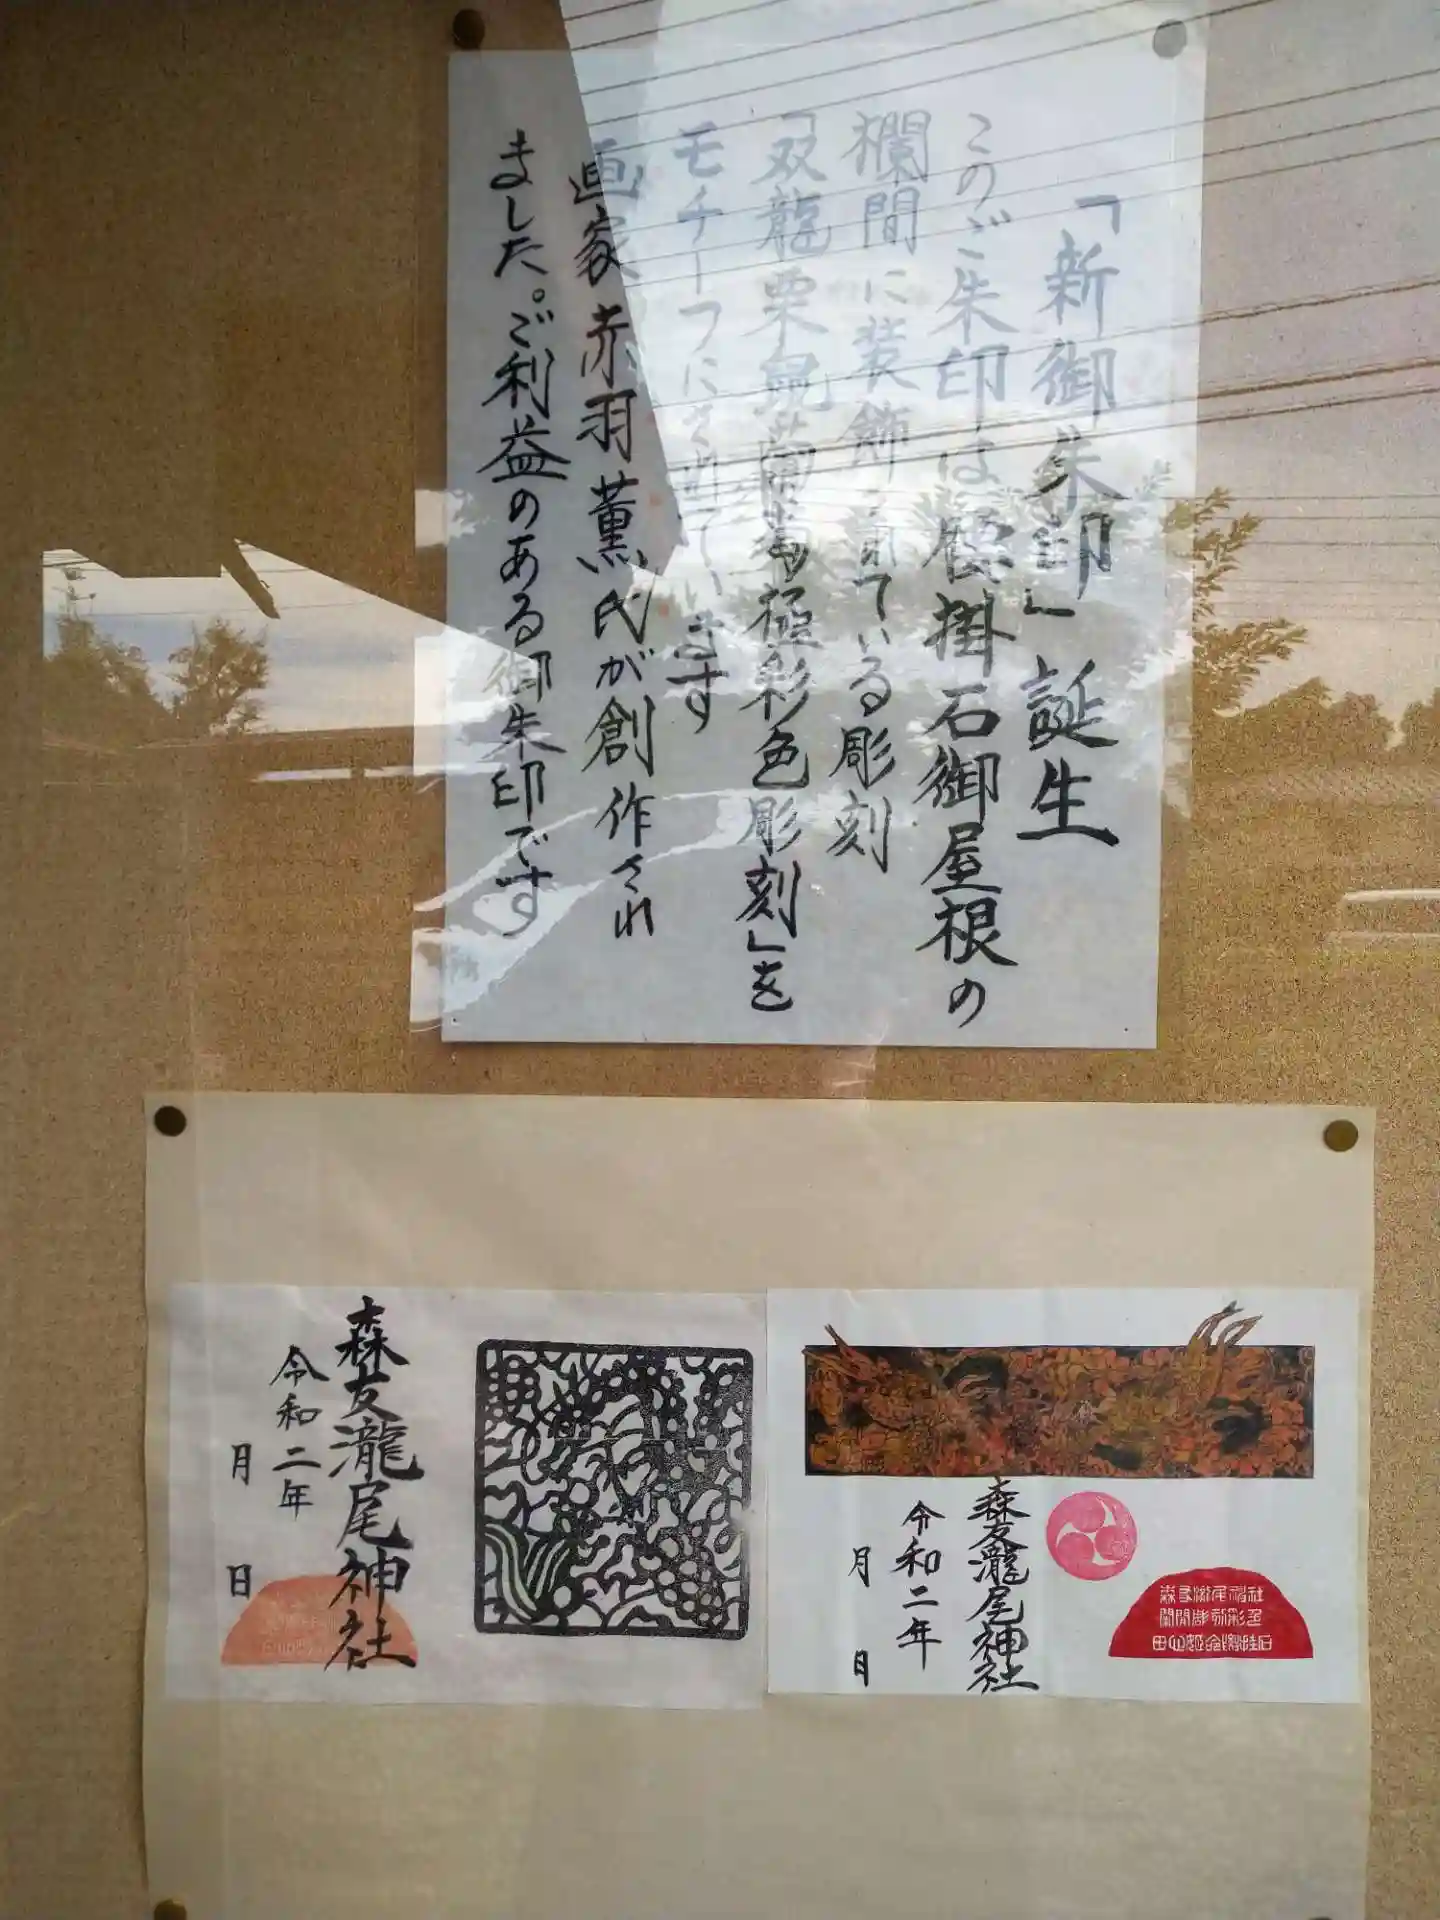 「新御朱印」誕生
このご朱印は腰掛石御屋根の
欄間に装飾されている彫刻
「双龍栗鼠葡萄極彩色彫刻」を
モチーフにされています
画家 赤羽薫氏が創作され
ました。ご利益のある御朱印です
森友瀧尾神社
令和二年
月 日
森友瀧尾神社
令和二年
月 日